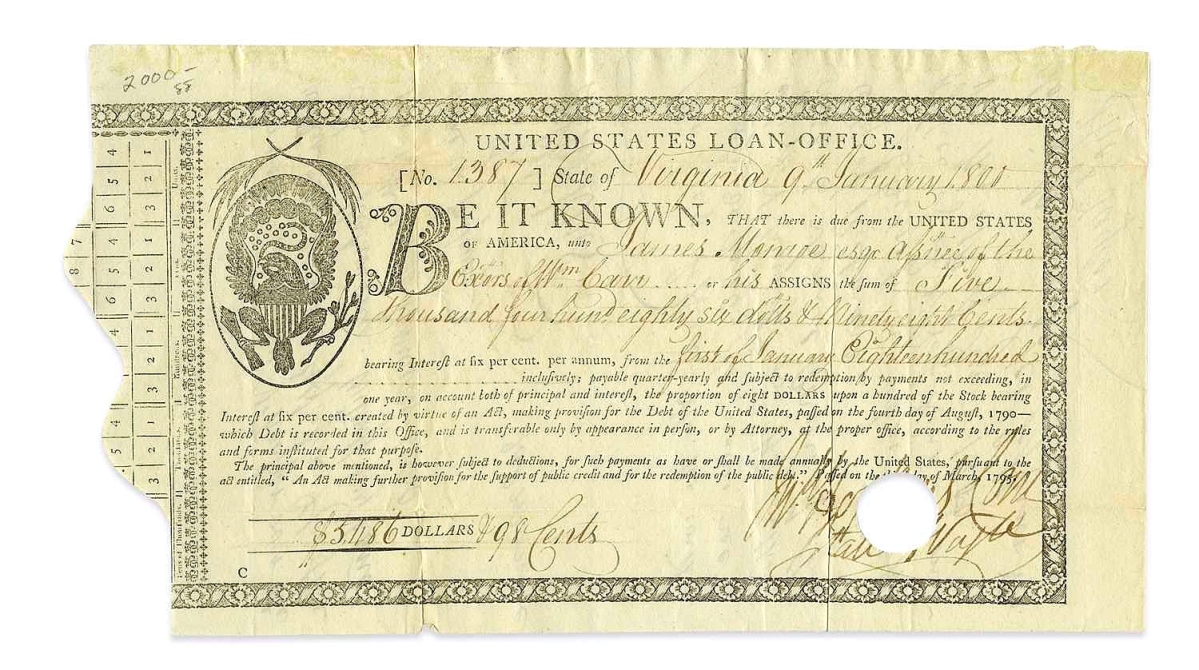 2000-
88
UNITED STATES LOAN-OFFICE.
[No. 1387] State of Virginia 9th January 1800
BE IT KNOWN, THAT there is due from the UNITED STATES
OF AMERICA, unto James Monroe esqr. assnee of the
Exors of Wm Carr or his ASSIGNS the sum of Five
thousand four hund eighty six dolls & Ninety eight Cents
bearing Interest at six per cent. per annum, from the first of January Eighteen hundred
inclusively; payable quarter-yearly and subject to redemption by payments not exceeding, in
one year, on account both of principal and interest, the proportion of eight DOLLARS upon a hundred of the Stock bearing
Interest at six per cent. created by virtue of an Act, making provision for the Debt of the United States, passed on the fourth day of August, 1790—
which Debt is recorded in this Office, and is transferable only by appearance in person, or by Attorney, at the proper office, according to the rules
and forms instituted for that purpose.
The principal above mentioned, is however subject to deductions, for such payments as have or shall be made annually by the United States, pursuant to the
act entitled, "An Act making further provision for the support of public credit and for the redemption of the public debt." Passed on the day of March, 1795.
$5,486 DOLLARS & 98 Cents
C
4 1
5 2
6 3
7 4 1
8 5 2
6 3
1
2
3
4 1
5 2
3